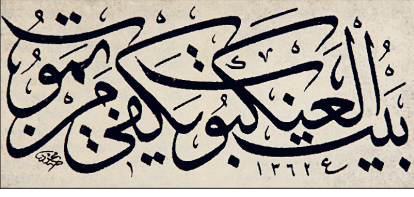 بيت العنكبوت يكفي من يموت
١٣٦٢